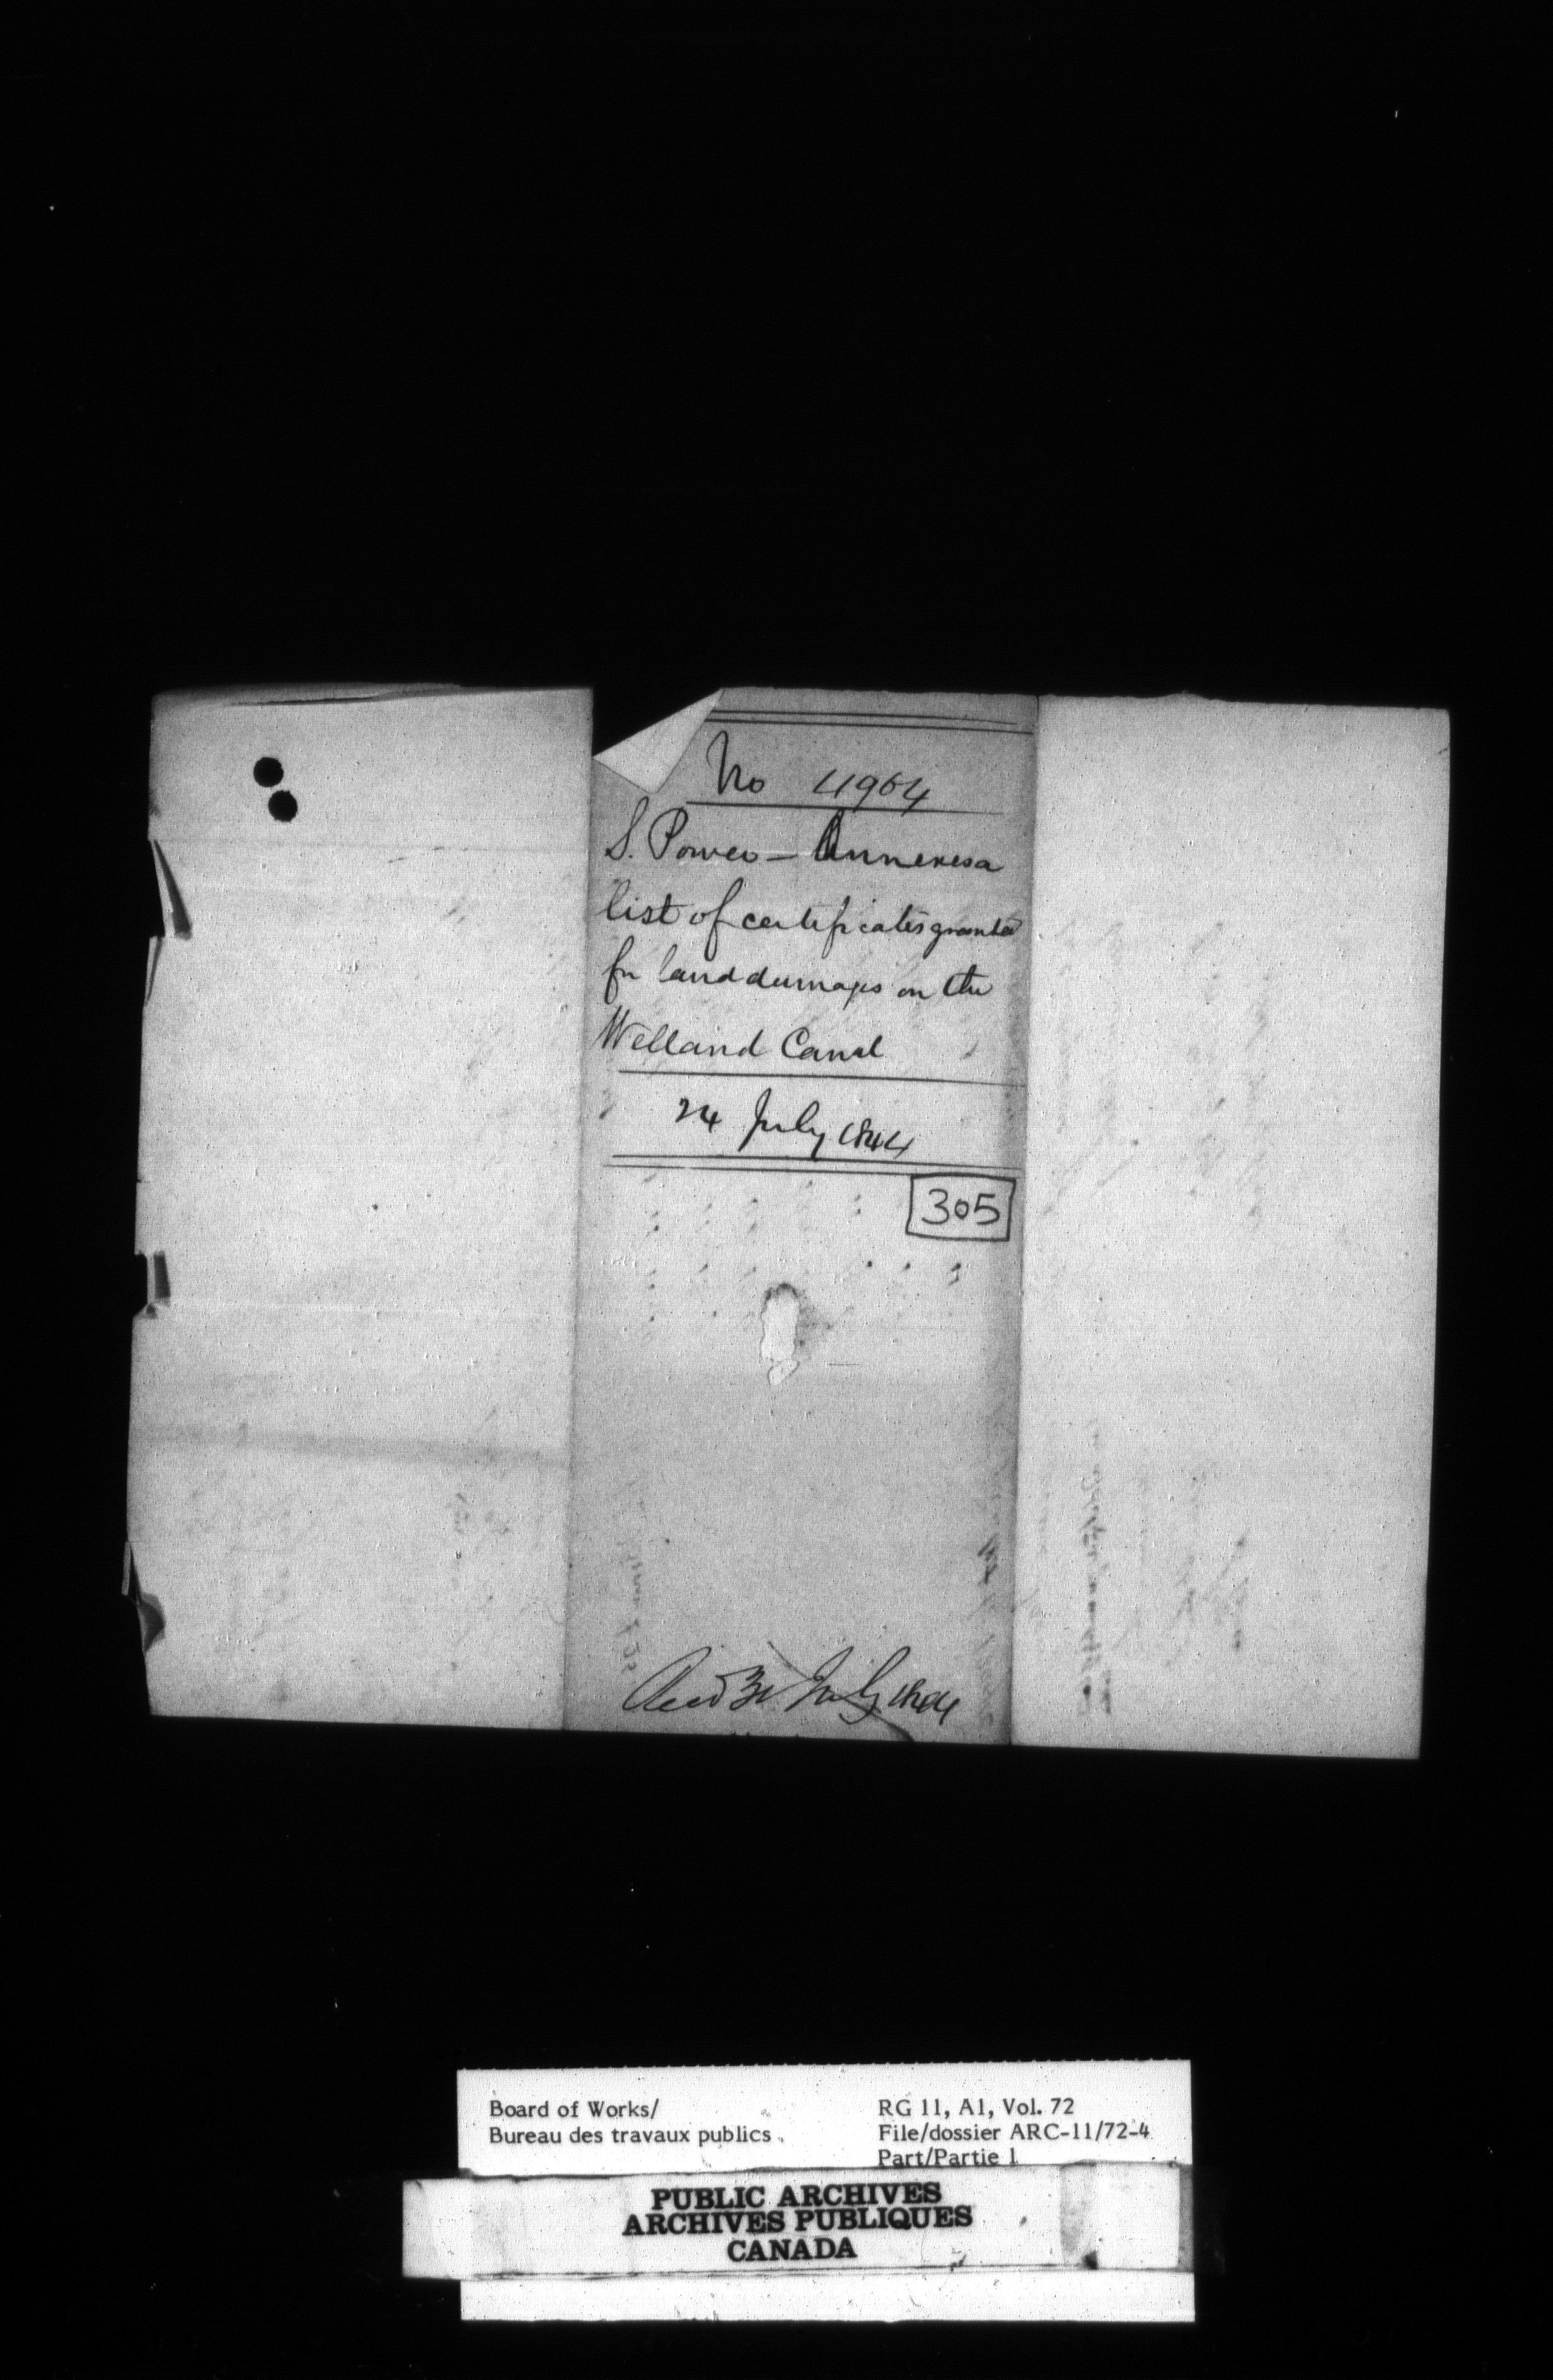 No 4904
S. Power – Annexes a
list of certificates granted
for land damages on the
Welland Canal
24 July 1844
305
Recd 31 July 1844
Board of Works/
Bureau des travaux publics
RG 11, A1, Vol. 72
File/dossier ARC-11/72-4
Part/Partie 1
PUBLIC ARCHIVES
ARCHIVES PUBLIQUES
CANADA